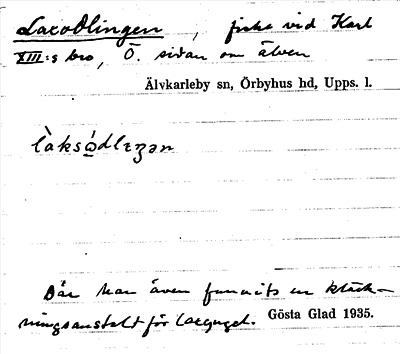 Laxodlingen, fiske vid Karl
XIII:s bro, Ö. sidan om älven
Älvkarleby sn, Örbyhus hd, Upps. l.
Där har även funnits en kläck-
ningsanstalt för laxyngel.
Gösta Glad 1935.